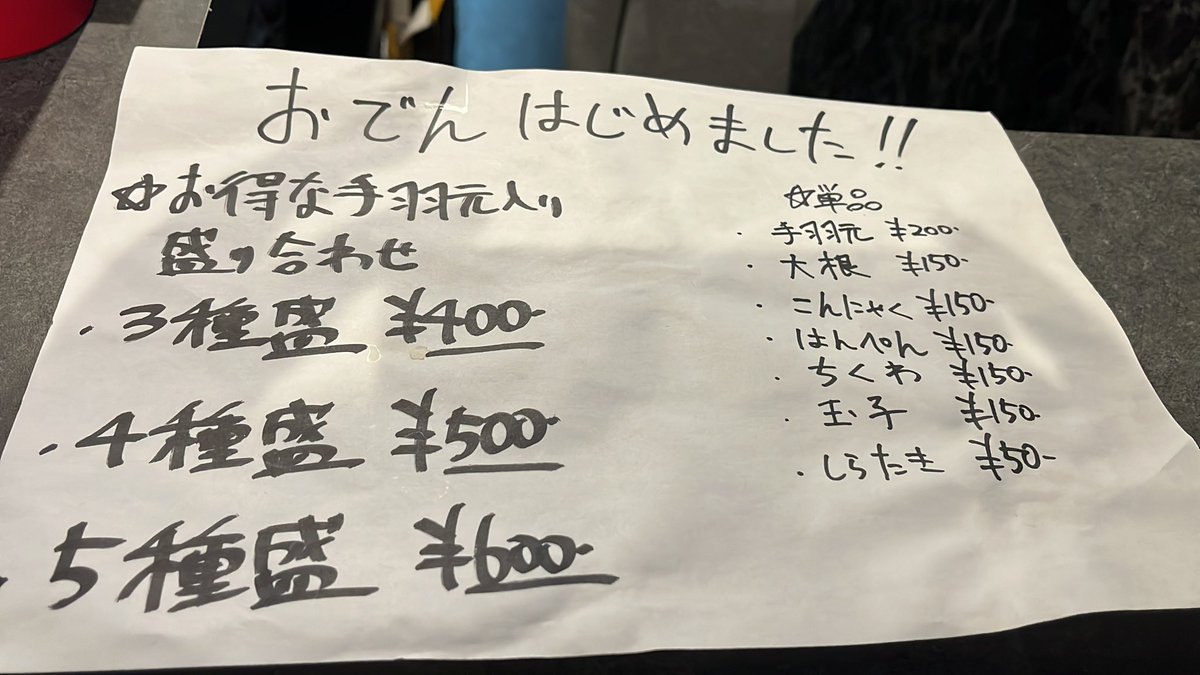 おでん はじめました!!
☆お得な手羽元入り
盛り合わせ
・3種盛 ¥400-
・4種盛 ¥500-
・5種盛 ¥600-
☆単品
・手羽元 ¥200-
・大根 ¥150-
・こんにゃく ¥150-
・はんぺん ¥150-
・ちくわ ¥150-
・玉子 ¥150-
・しらたき ¥50-